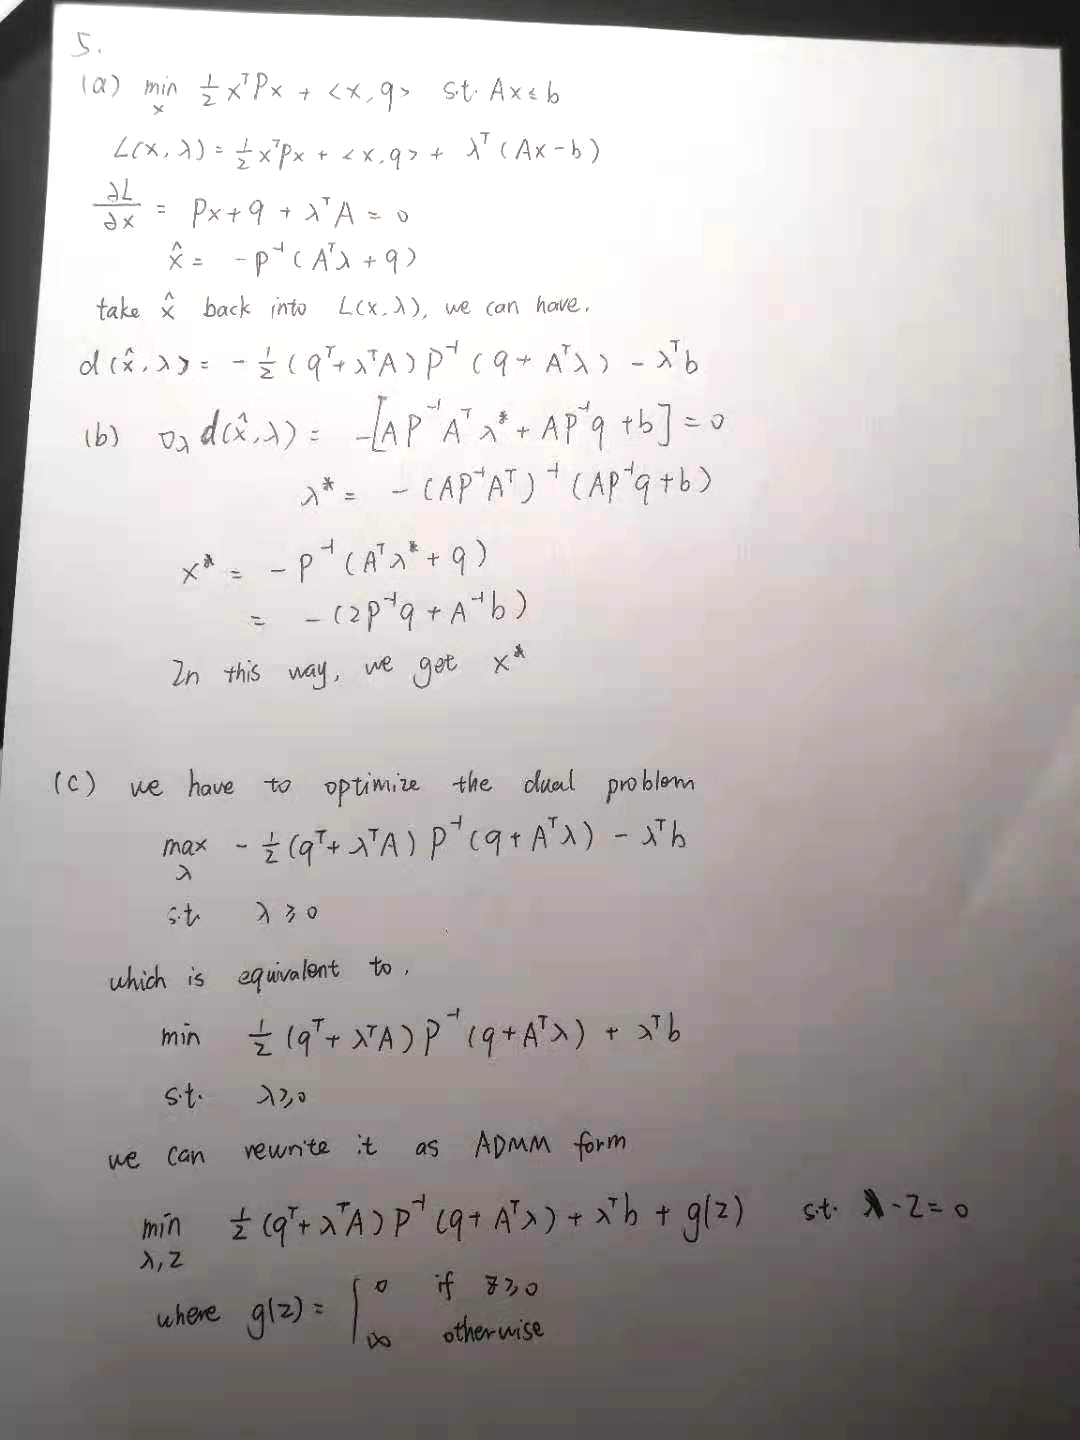 5.
(a) min_x 1/2 xᵀPx + <x, q> s.t. Ax ≤ b
L(x, λ) = 1/2 xᵀPx + <x, q> + λᵀ(Ax - b)
∂L/∂x = Px + q + λᵀA = 0
x̂ = -P⁻¹(Aᵀλ + q)
take x̂ back into L(x, λ), we can have.
d(x̂, λ) = -1/2 (qᵀ + λᵀA) P⁻¹ (q + Aᵀλ) - λᵀb
(b) ∇λ d(x̂, λ) = -[AP⁻¹Aᵀλ* + AP⁻¹q + b] = 0
λ* = -(AP⁻¹Aᵀ)⁻¹ (AP⁻¹q + b)
x* = -P⁻¹(Aᵀλ* + q)
= -(2P⁻¹q + A⁻¹b)
In this way, we get x*
(c) we have to optimize the dual problem
max_λ -1/2 (qᵀ + λᵀA) P⁻¹ (q + Aᵀλ) - λᵀb
s.t. λ ≥ 0
which is equivalent to,
min 1/2 (qᵀ + λᵀA) P⁻¹ (q + Aᵀλ) + λᵀb
s.t. λ ≥ 0
we can rewrite it as ADMM form
min_{λ, z} 1/2 (qᵀ + λᵀA) P⁻¹ (q + Aᵀλ) + λᵀb + g(z) s.t. λ - z = 0
where g(z) = { 0 if z ≥ 0
∞ otherwise